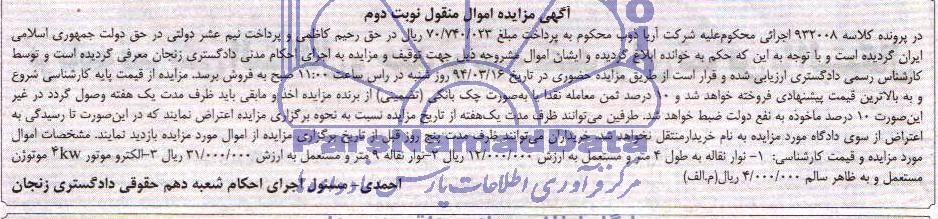 آگهی مزایده اموال منقول نوبت دوم
در پرونده کلاسه ۹۳۳۰۰۸ اجرائی محکوم‌علیه شرکت آریا ذوب محکوم به پرداخت مبلغ ۷۰/۷۴۰/۰۲۳ ریال در حق رحیم کاظمی و پرداخت نیم عشر دولتی در حق دولت جمهوری اسلامی
ایران گردیده است و با توجه به این که حکم به خوانده ابلاغ گردیده و ایشان اموال مشروحه ذیل جهت توقیف و مزایده به اجرای احکام مدنی دادگستری زنجان معرفی گردیده است و توسط
کارشناس رسمی دادگستری ارزیابی شده و قرار است از طریق مزایده حضوری در تاریخ ۹۴/۰۳/۱۶ روز شنبه در راس ساعت ۱۱:۰۰ صبح به فروش برسد. مزایده از قیمت پایه کارشناسی شروع
و به بالاترین قیمت پیشنهادی فروخته خواهد شد و ۱۰ درصد ثمن معامله نقدا یا به‌صورت چک بانکی (تضمینی) از برنده مزایده اخذ و مابقی باید ظرف مدت یک هفته وصول گردد در غیر
این‌صورت ۱۰ درصد ماخوذه به نفع دولت ضبط خواهد شد. طرفین می‌توانند ظرف مدت یک‌هفته از تاریخ مزایده نسبت به نحوه برگزاری مزایده اعتراض نمایند که در این‌صورت تا رسیدگی به
اعتراض از سوی دادگاه مورد مزایده به نام خریدارمنتقل نخواهد شد. خریداران می‌توانند ظرف مدت پنج روز قبل از تاریخ برگزاری مزایده از اموال مورد مزایده بازدید نمایند. مشخصات اموال
مورد مزایده و قیمت کارشناسی: ۱- نوار نقاله به طول ۴ متر و مستعمل به ارزش ۱۲/۰۰۰/۰۰۰ ریال ۲-نوار نقاله ۹ متر و مستعمل به ارزش ۳۱/۰۰۰/۰۰۰ ریال ۳-الکترو موتور ۴kw موتوژن
مستعمل و به ظاهر سالم ۴/۰۰۰/۰۰۰ ریال(م.الف)
احمدی- مسئول اجرای احکام شعبه دهم حقوقی دادگستری زنجان
ParsNamadData
مرکز فرآوری اطلاعات پارس نماد داده‌ها